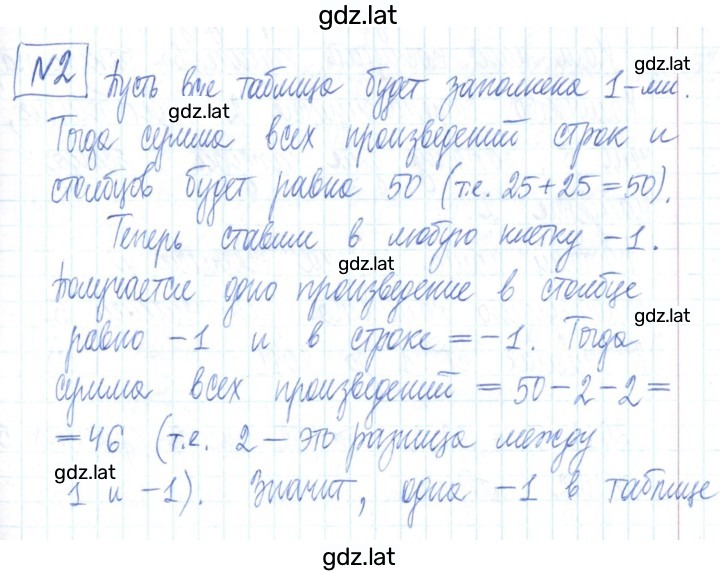 gdz.lat
N2 Пусть вме таблица будет заполнена 1-ми.
gdz.lat
gdz.lat
Тогда сумма всех произведений строк и
столбцов будет равна 50 (т.е. 25+25=50).
Теперь ставим в любую клетку -1.
gdz.lat
Получается одно произведение в столбце
gdz.lat
равно -1 и в строке = -1. Тогда
сумма всех произведений = 50-2-2=
=46 (т.е. 2 - это разница между
gdz.lat
1 и -1). Значит, одна -1 в таблице
gdz.lat